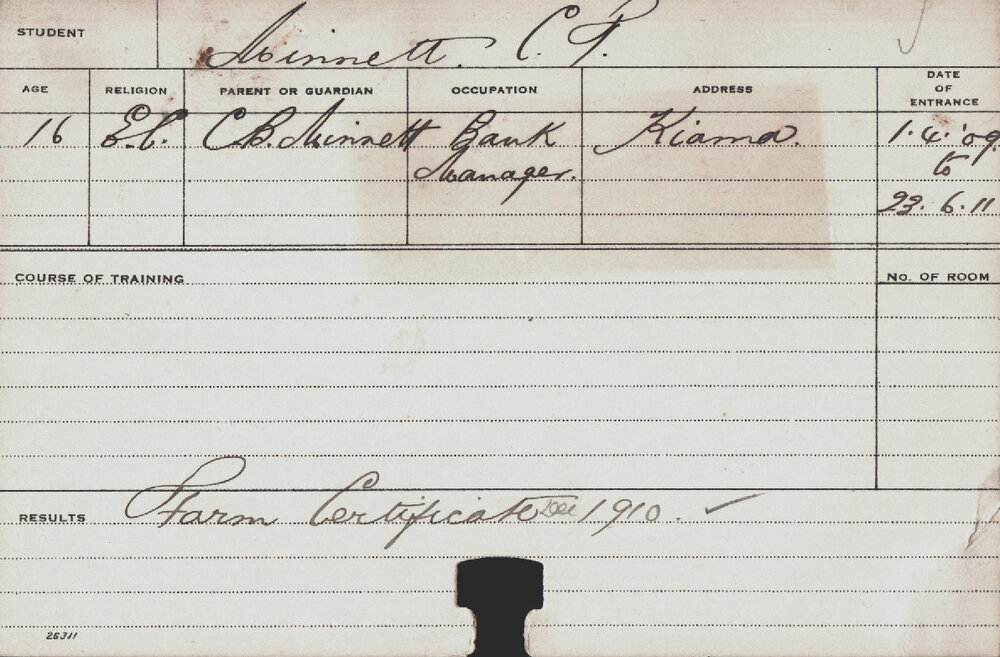 STUDENT Minnett. C. P.
AGE RELIGION PARENT OR GUARDIAN OCCUPATION ADDRESS DATE OF ENTRANCE
16 E.C. C.B. Minnett Bank Kiama. 1.4.'09
Manager. to
23.6.11
COURSE OF TRAINING No. OF ROOM
RESULTS Farm Certificate Dec 1910.
26311